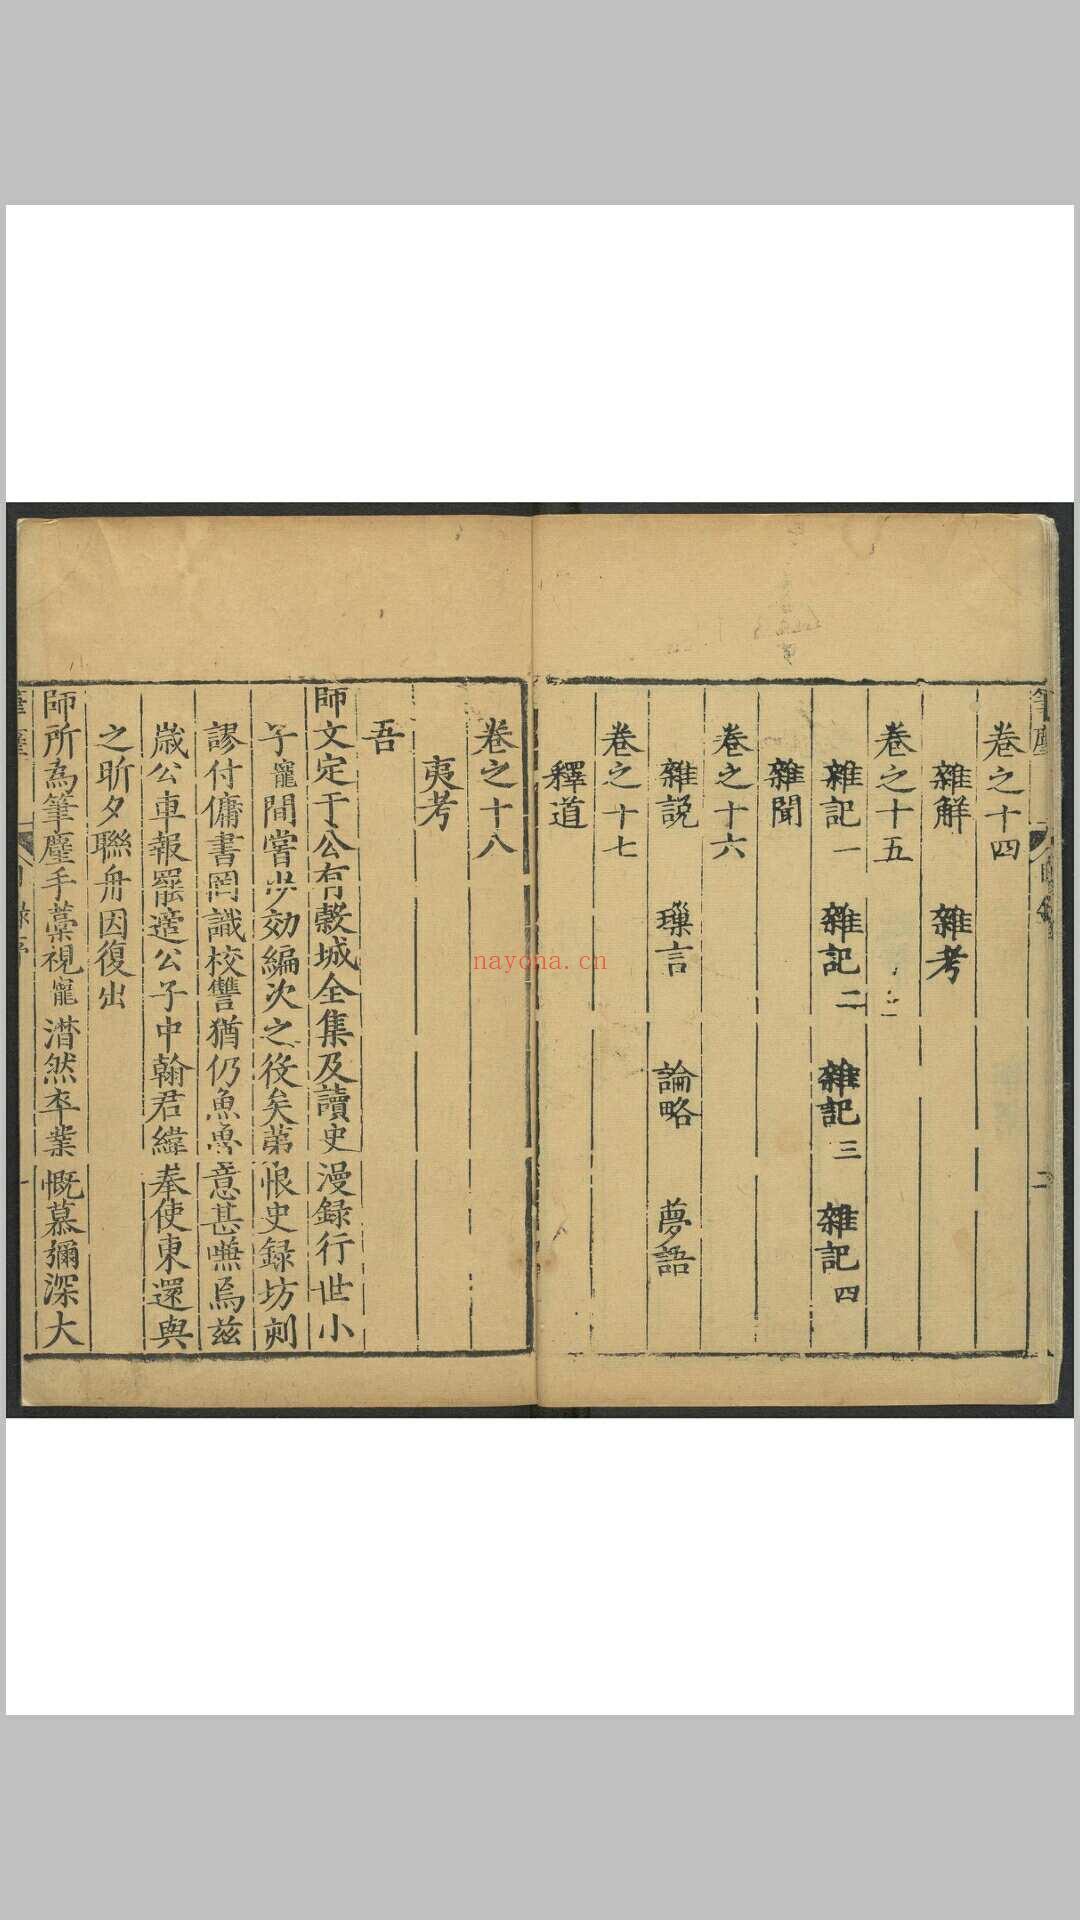 卷之十四
雜解 雜考
卷之十五
雜記一 雜記二 雜記三 雜記四
雜聞
卷之十六
雜說 璅言 論略 夢語
卷之十七
釋道
卷之十八
夷考
吾
師文定于公有穀城全集及讀史漫録行世小
子寵間嘗少効編次之役矣第恨史録坊刻
謬付傭書罔識校讐猶仍魚魯意甚嗛焉茲
歲公車報罷遊公子中翰君緯奉使東還與
之昕夕聯舟因復出
師所為筆麈手藁視寵潸然卒業慨慕彌深大
nayona.cn